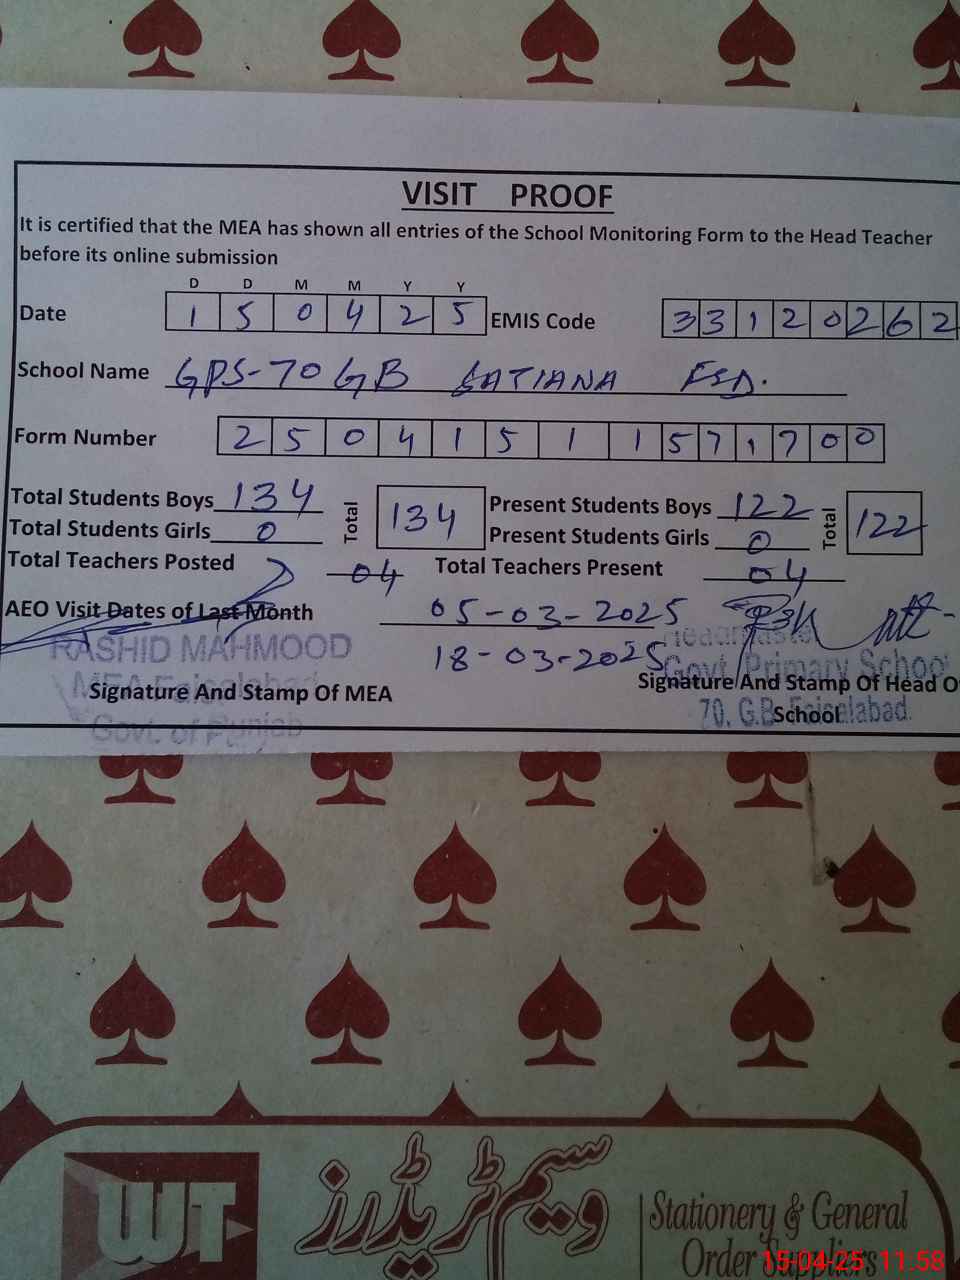 VISIT PROOF
It is certified that the MEA has shown all entries of the School Monitoring Form to the Head Teacher
before its online submission
D D M M Y Y
Date 1 5 0 4 2 5 EMIS Code 3 3 1 2 0 2 6 2
School Name GPS-70 GB SATIANA FSD.
Form Number 2 5 0 4 1 5 1 1 5 7 1 7 0 0
Total Students Boys 134 Total 134 Present Students Boys 122 Total 122
Total Students Girls 0 Present Students Girls 0
Total Teachers Posted 04 Total Teachers Present 04
AEO Visit Dates of Last Month 05-03-2025
18-03-2025
RASHID MAHMOOD
MEA Faisalabad
Govt. of Punjab
Signature And Stamp Of MEA
Headmaster
Govt. Primary School
70, G.B. Faisalabad.
Signature And Stamp Of Head O
School
WT
وسیم ٹریڈرز
Stationery & General
Order Suppliers
15-04-25 11:58